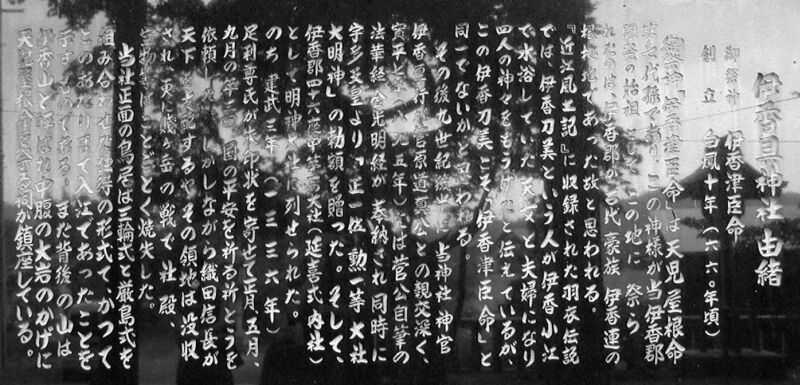 伊香具神社由緒
御祭神　伊香津臣命
創立　白鳳十年（六八〇年頃）
御祭神「伊香津臣命」は天児屋根命
第七代孫であり、この神様が当伊香郡
開發の始祖としてこの地に祭ら
れたのは、伊香郡が古代豪族　伊香連の
根拠地であった故と思われる。
『近江風土記』に収録された羽衣伝説
では、伊香刀美という人が伊香小江
で水浴していた天女と夫婦になり
四人の神々をもうけたと伝えているが、
この伊香刀美こそ「伊香津臣命」と
同一でないかと思われる。
その後九世紀後半に、当神社神官
伊香厚行が菅原道真公との親交深く、
寛平七年（八九五年）には菅公自筆の
法華経、金光明経が奉納され同時に
宇多天皇より「正一位勲一等大社
大明神」の勅額を賜った。そして、
伊香郡四六座中第一の大社（延喜式内社）
として明神大社に列せられた。
のち、建武三年（一三三六年）
足利尊氏が朱印状を寄せて正月、五月、
九月の年三回、国の平安を祈る祈とうを
依頼した。しかしながら織田信長が
天下を支配するや、その領地は没収
され、更に賤ヶ岳の戦で社殿、
宝物等はことごとく焼失した。
当社正面の鳥居は三輪式と厳島式を
組み合わせた独特の形式で、かつて
このあたりまで入江であったことを
示すものである。また背後の山は
伊香山と呼ばれ中腹の大岩のかげに
天児屋根命を祭る祠が鎮座している。